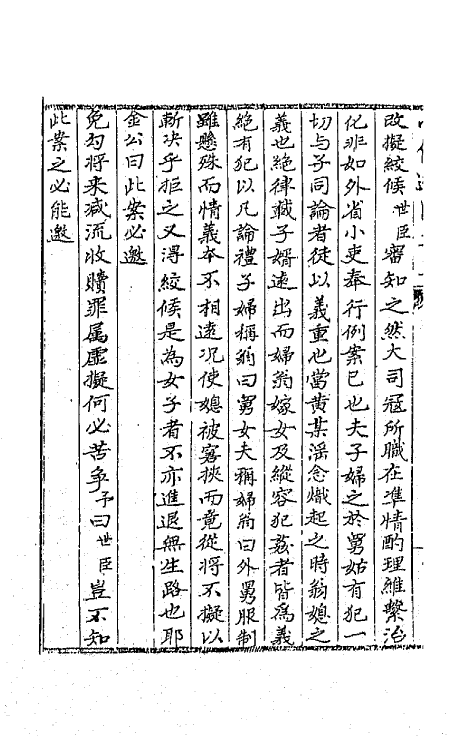 改擬絞候世臣審知之然大司寇所職在準情酌理維繫治
化非如外省小吏奉行例案已也夫子婦之於舅姑有犯一
切与子同論者徒以義重也當黄某淫念熾起之時翁媳之
義也絶律載子婿遠出而婦翁嫁女及縱容犯姦者皆為義
絶有犯以凡論禮子婦稱翁曰舅女夫稱婦翁曰外舅服制
雖懸殊而情義本不相遠况使媳被窘挾而竟從將不擬以
斬决乎拒之又得絞候是為女子者不亦進退無生路也耶
金公曰此案必邀
免勾将来减流收贖罪属虚擬何必苦争予曰世臣豈不知
此案之必能邀